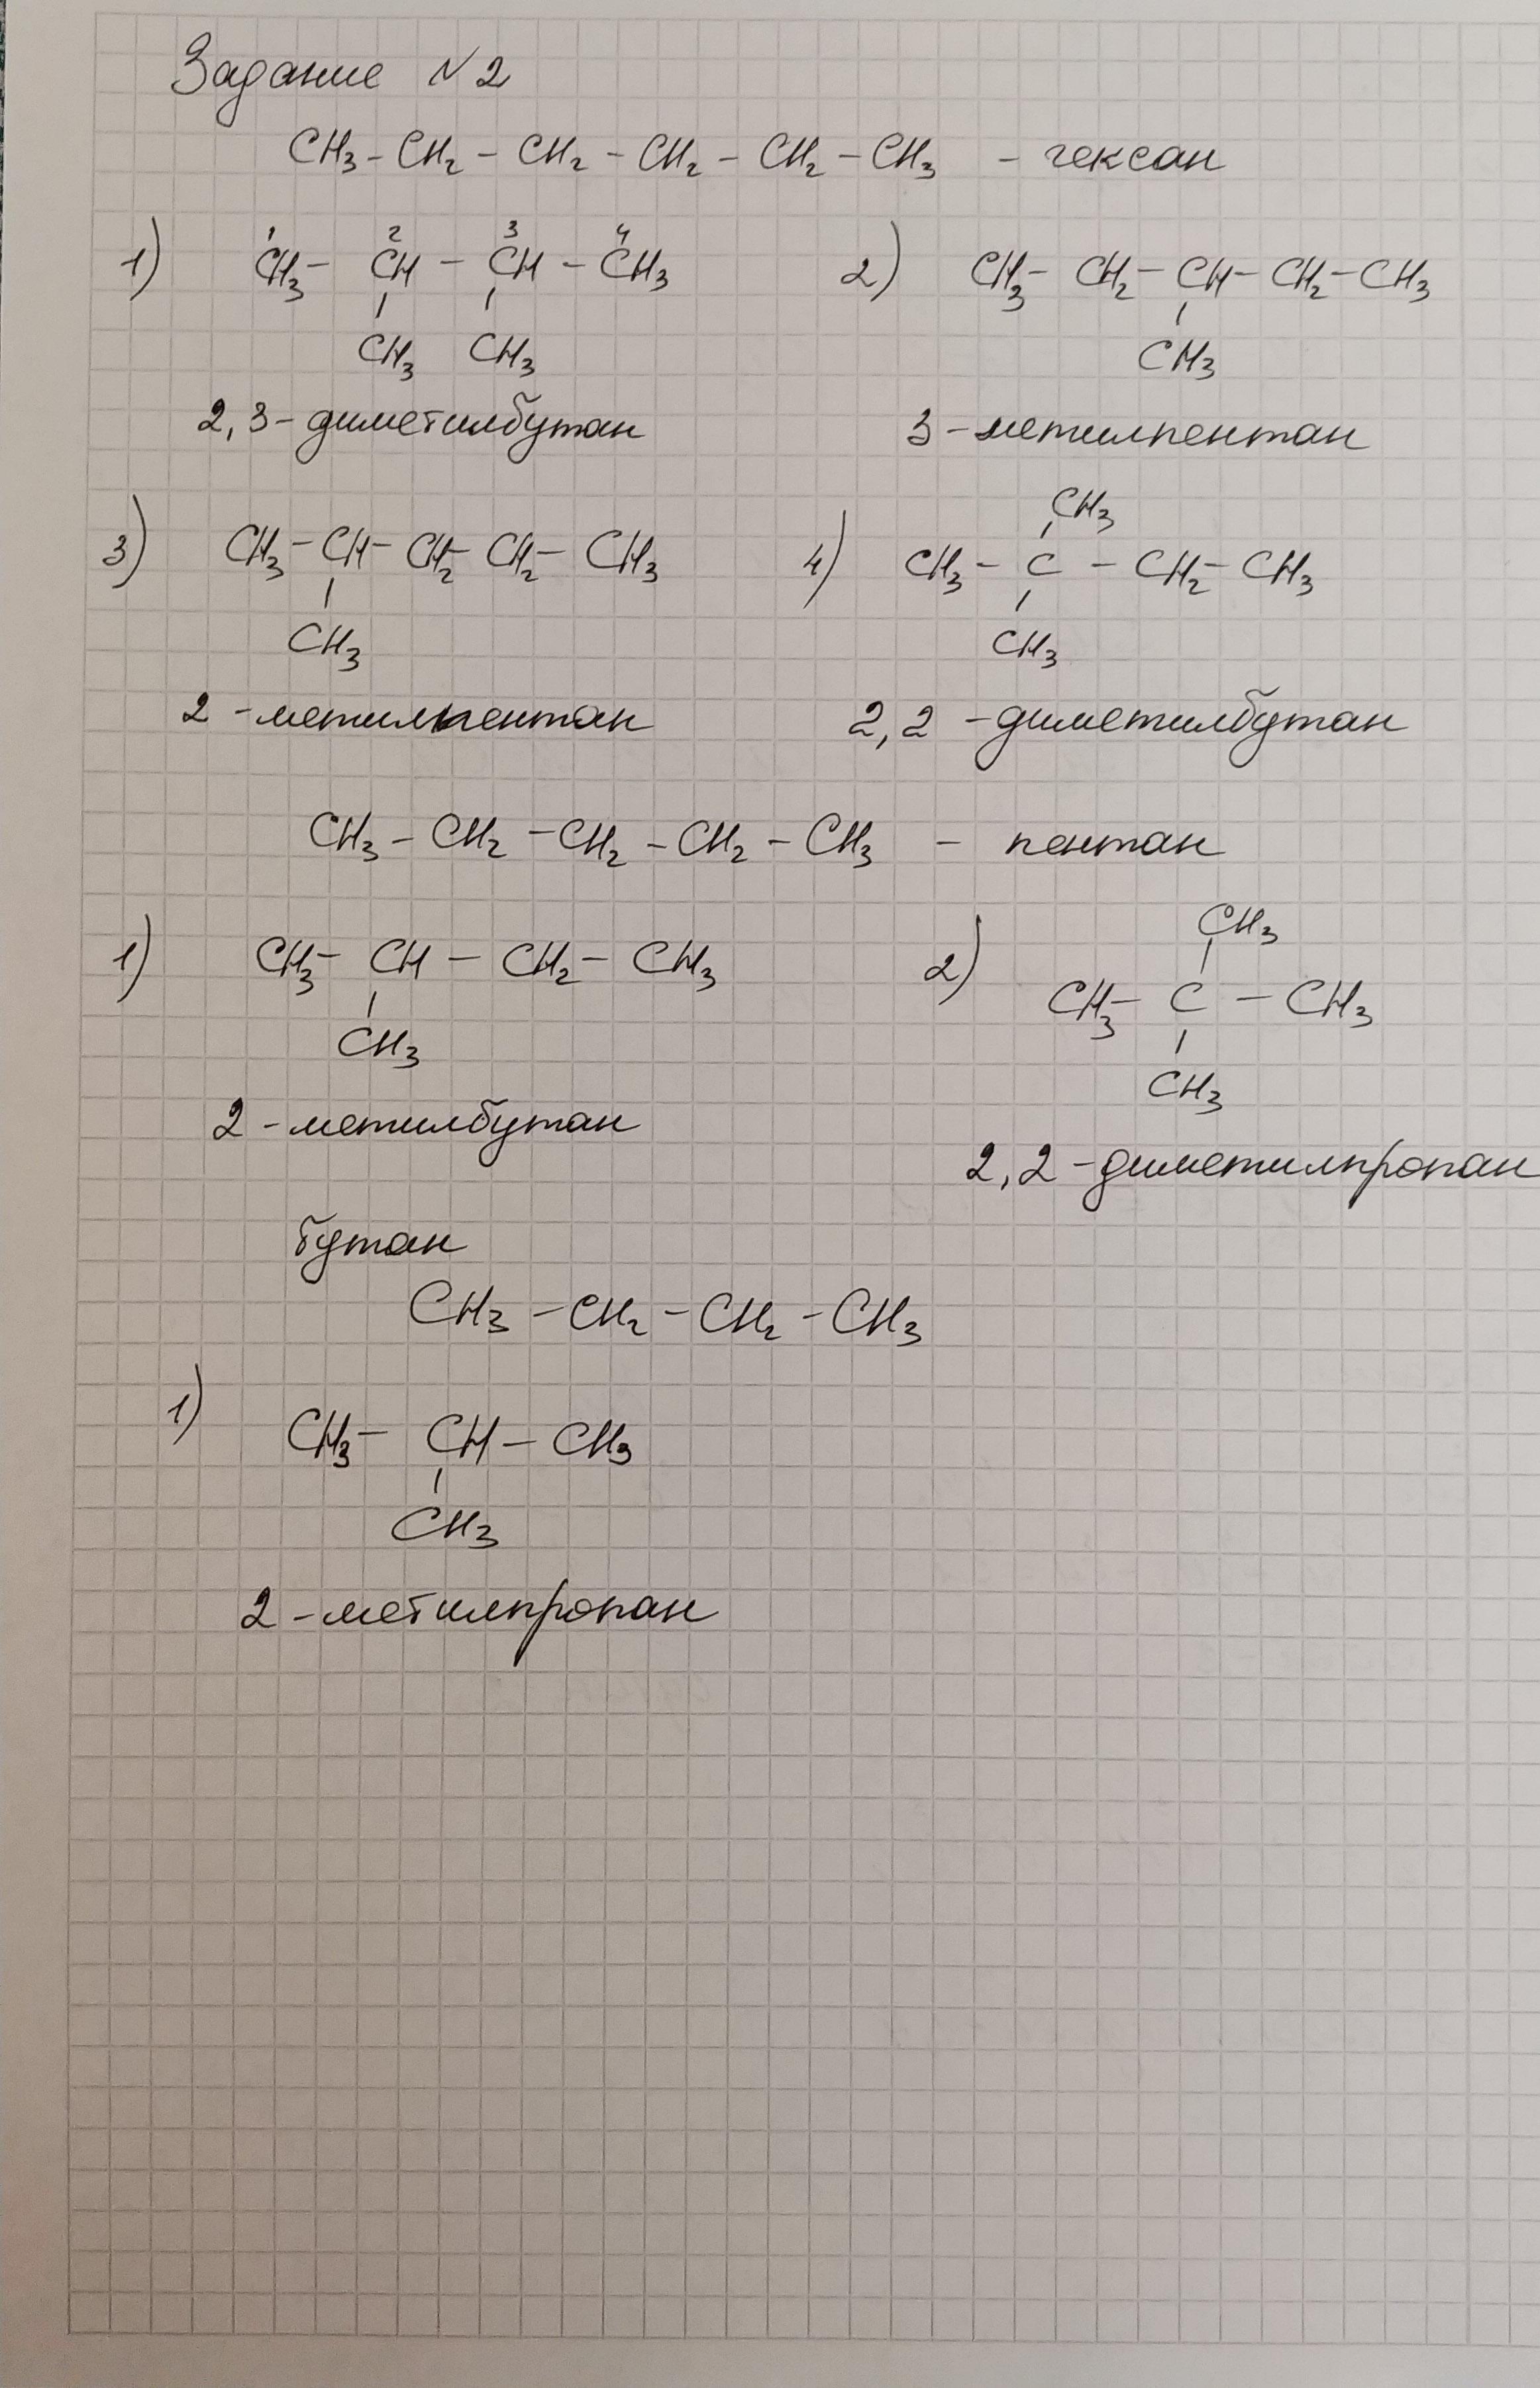 Задание N2
CH3 - CH2 - CH2 - CH2 - CH2 - CH3 - гексан
1) 1 2 3 4
CH3 - CH - CH - CH3
CH3 CH3
2,3 - диметилбутан
2) CH3 - CH2 - CH - CH2 - CH3
CH3
3 - метилпентан
3) CH3 - CH - CH2 - CH2 - CH3
CH3
2 - метилпентан
4) CH3
CH3 - C - CH2 - CH3
CH3
2,2 - диметилбутан
CH3 - CH2 - CH2 - CH2 - CH3 - пентан
1) CH3 - CH - CH2 - CH3
CH3
2 - метилбутан
2) CH3
CH3 - C - CH3
CH3
2,2 - диметилпропан
бутан
CH3 - CH2 - CH2 - CH3
1) CH3 - CH - CH3
CH3
2 - метилпропан